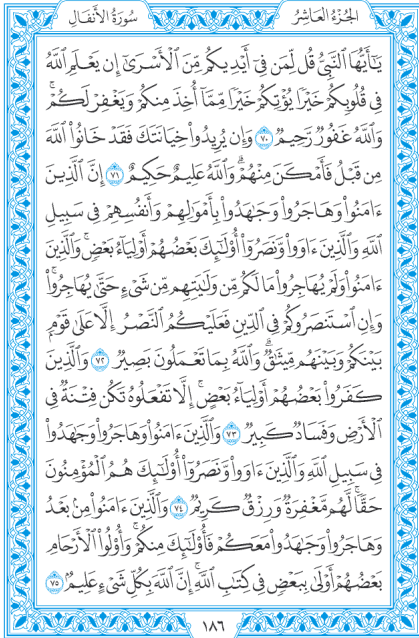 الجُزْءُ العَاشِرُ
سُورَةُ الأَنفَالِ
يَٰٓأَيُّهَا ٱلنَّبِيُّ قُل لِّمَن فِيٓ أَيْدِيكُم مِّنَ ٱلْأَسْرَىٰٓ إِن يَعْلَمِ ٱللَّهُ
فِي قُلُوبِكُمْ خَيْرًا يُؤْتِكُمْ خَيْرًا مِّمَّآ أُخِذَ مِنكُمْ وَيَغْفِرْ لَكُمْۚ
وَٱللَّهُ غَفُورٌ رَّحِيمٌ ٧٠ وَإِن يُرِيدُوا۟ خِيَانَتَكَ فَقَدْ خَانُوا۟ ٱللَّهَ
مِن قَبْلُ فَأَمْكَنَ مِنْهُمْۗ وَٱللَّهُ عَلِيمٌ حَكِيمٌ ٧١ إِنَّ ٱلَّذِينَ
ءَامَنُوا۟ وَهَاجَرُوا۟ وَجَٰهَدُوا۟ بِأَمْوَٰلِهِمْ وَأَنفُسِهِمْ فِي سَبِيلِ
ٱللَّهِ وَٱلَّذِينَ ءَاوَوا۟ وَّنَصَرُوٓا۟ أُو۟لَٰٓئِكَ بَعْضُهُمْ أَوْلِيَآءُ بَعْضٍۚ وَٱلَّذِينَ
ءَامَنُوا۟ وَلَمْ يُهَاجِرُوا۟ مَا لَكُم مِّن وَلَٰيَتِهِم مِّن شَيْءٍ حَتَّىٰ يُهَاجِرُوا۟ۚ
وَإِنِ ٱسْتَنصَرُوكُمْ فِي ٱلدِّينِ فَعَلَيْكُمُ ٱلنَّصْرُ إِلَّا عَلَىٰ قَوْمٍۭ
بَيْنَكُمْ وَبَيْنَهُم مِّيثَٰقٌۗ وَٱللَّهُ بِمَا تَعْمَلُونَ بَصِيرٌ ٧٢ وَٱلَّذِينَ
كَفَرُوا۟ بَعْضُهُمْ أَوْلِيَآءُ بَعْضٍۚ إِلَّا تَفْعَلُوهُ تَكُن فِتْنَةٌ فِي
ٱلْأَرْضِ وَفَسَادٌ كَبِيرٌ ٧٣ وَٱلَّذِينَ ءَامَنُوا۟ وَهَاجَرُوا۟ وَجَٰهَدُوا۟
فِي سَبِيلِ ٱللَّهِ وَٱلَّذِينَ ءَاوَوا۟ وَّنَصَرُوٓا۟ أُو۟لَٰٓئِكَ هُمُ ٱلْمُؤْمِنُونَ
حَقًّاۚ لَّهُم مَّغْفِرَةٌ وَرِزْقٌ كَرِيمٌ ٧٤ وَٱلَّذِينَ ءَامَنُوا۟ مِنۢ بَعْدُ
وَهَاجَرُوا۟ وَجَٰهَدُوا۟ مَعَكُمْ فَأُو۟لَٰٓئِكَ مِنكُمْۚ وَأُو۟لُوا۟ ٱلْأَرْحَامِ
بَعْضُهُمْ أَوْلَىٰ بِبَعْضٍ فِي كِتَٰبِ ٱللَّهِۗ إِنَّ ٱللَّهَ بِكُلِّ شَيْءٍ عَلِيمٌۢ ٧٥
١٨٦